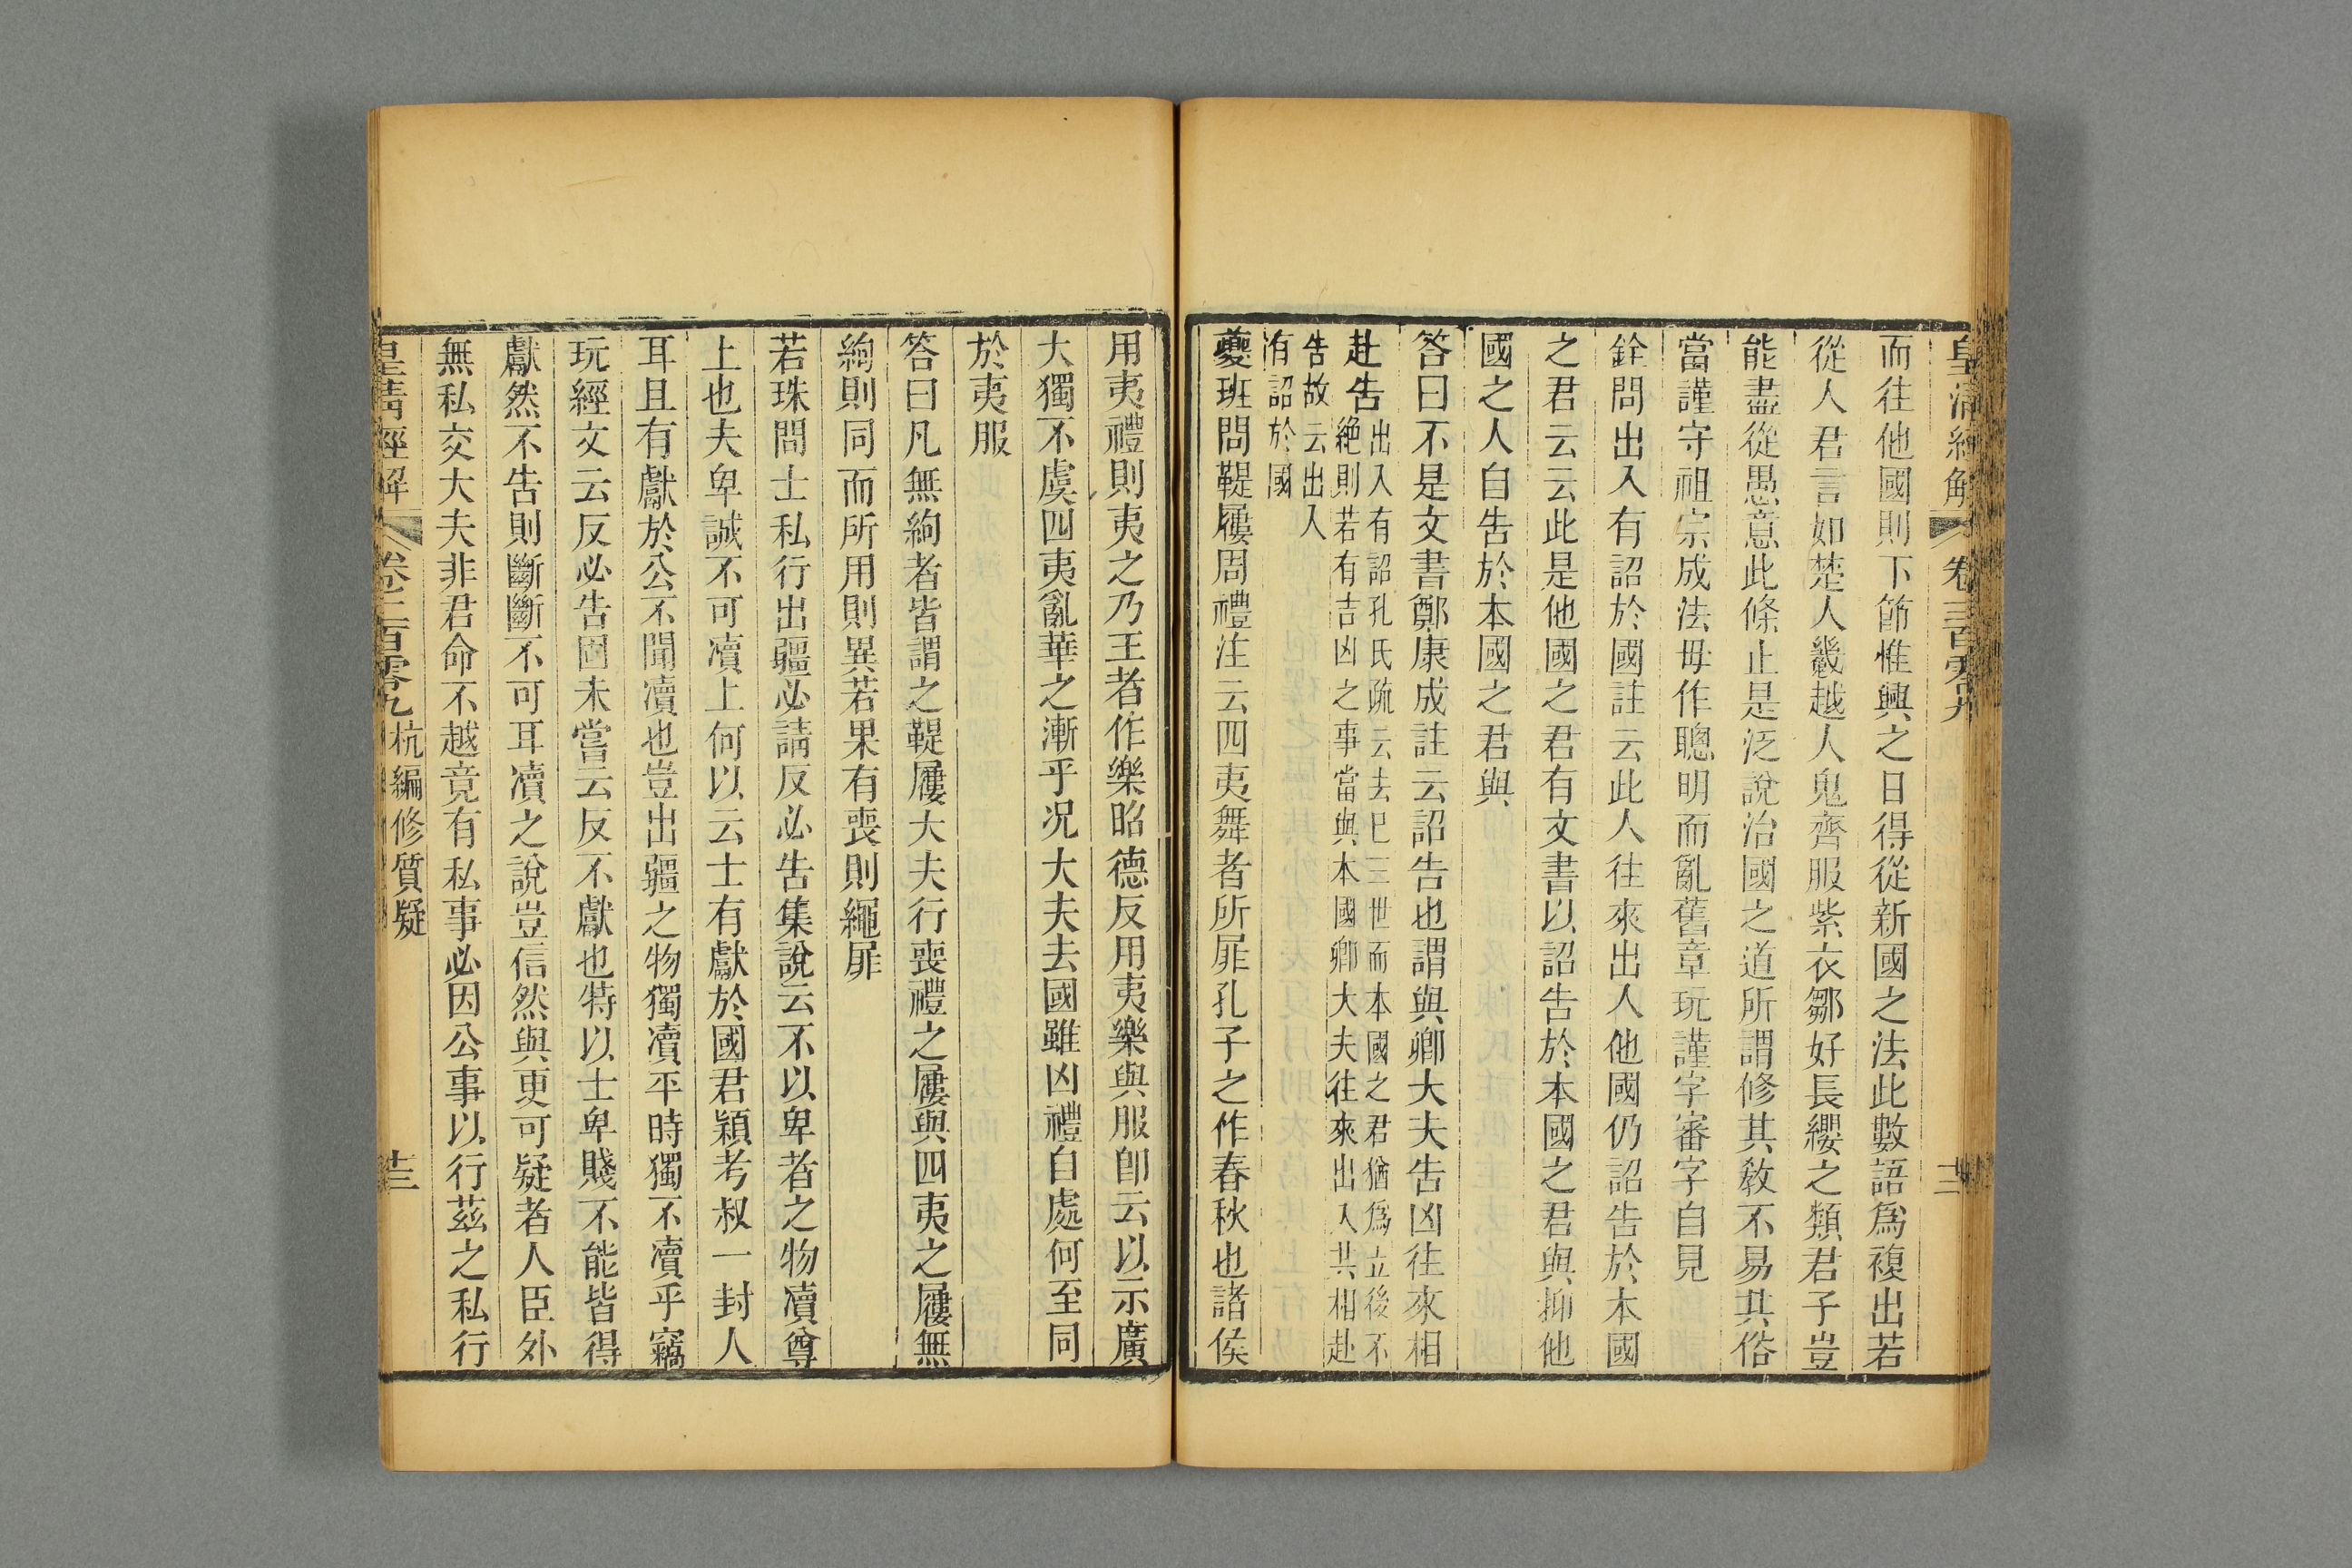 皇清經解 卷三百零九 十二
而往他國則下節惟興之日得從新國之法此數語爲複出若
從人君言如楚人禨越人鬼齊服紫衣鄒好長纓之類君子豈
能盡從愚意此條止是泛說治國之道所謂修其敎不易其俗
當謹守祖宗成法毋作聰明而亂舊章玩謹字審字自見
銓問出入有詔於國註云此人往來出人他國仍詔告於本國
之君云云此是他國之君有文書以詔告於本國之君與抑他
國之人自告於本國之君與
答曰不是文書鄭康成註云詔告也謂與卿大夫告凶往來相
赴告
出入有詔孔氏疏云去已三世而本國之君猶爲立後不
絶則若有吉凶之事當與本國卿大夫往來出入共相赴
告故云出入
有詔於國
夔班問鞮屨周禮注云四夷舞者所屝孔子之作春秋也諸侯
用夷禮則夷之乃王者作樂昭德反用夷樂與服卽云以示廣
大獨不虞四夷亂華之漸乎况大夫去國雖凶禮自處何至同
於夷服
答曰凡無絇者皆謂之鞮屨大夫行喪禮之屨與四夷之屨無
絇則同而所用則異若果有喪則繩屝
若珠問士私行出疆必請反必告集說云不以卑者之物凟尊
上也夫卑誠不可凟上何以云士有獻於國君穎考叔一封人
耳且有獻於公不聞凟也豈出疆之物獨凟平時獨不凟乎竊
玩經文云反必告固未嘗云反不獻也特以士卑賤不能皆得
獻然不告則斷斷不可耳凟之說豈信然與更可疑者人臣外
無私交大夫非君命不越竟有私事必因公事以行茲之私行
皇清經解 卷三百零九 杭編修質疑 十三